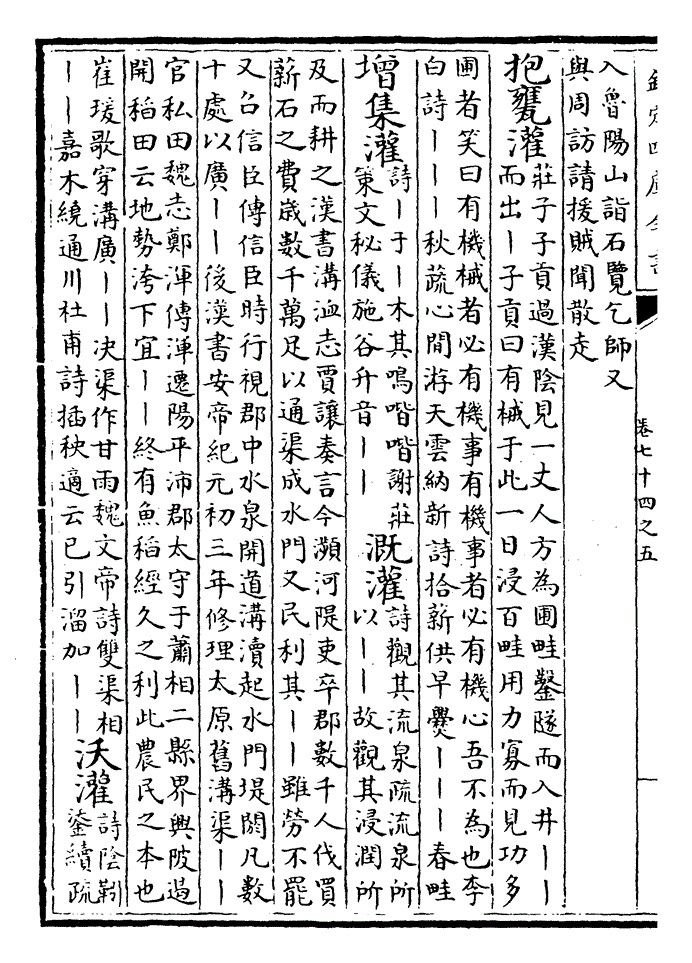 欽定四庫全書
卷七十四之五
入魯陽山詣石覽乞師又
與周訪請援賊聞散走
抱甕灌
莊子子貢過漢陰見一丈人方為圃畦鑿隧而入井丨丨
而出丨子貢曰有械于此一日浸百畦用力寡而見功多
圃者笑曰有機械者必有機事有機事者必有機心吾不為也李
白詩丨丨丨秋蔬心閒游天雲納新詩拾薪供早爨丨丨丨春畦
增集灌
詩丨于丨木其鳴喈喈謝莊
策文秘儀施谷升音丨丨
溉灌
詩觀其流泉疏流泉所
以丨丨故觀其浸潤所
及而耕之漢書溝洫志賈讓奏言今瀕河隄吏卒郡數千人伐買
薪石之費歲數千萬足以通渠成水門又民利其丨丨雖勞不罷
又召信臣傳信臣時行視郡中水泉開道溝瀆起水門堤閼凡數
十處以廣丨丨後漢書安帝紀元初三年修理太原舊溝渠丨丨
官私田魏志鄭渾傳渾遷陽平沛郡太守于蕭相二縣界興陂遏
開稻田云地勢洿下宜丨丨終有魚稻經久之利此農民之本也
崔瑗歌穿溝廣丨丨決渠作甘雨魏文帝詩雙渠相
丨丨嘉木繞通川杜甫詩插秧適云已引溜加丨丨
沃灌
詩陰靷
鋈續疏